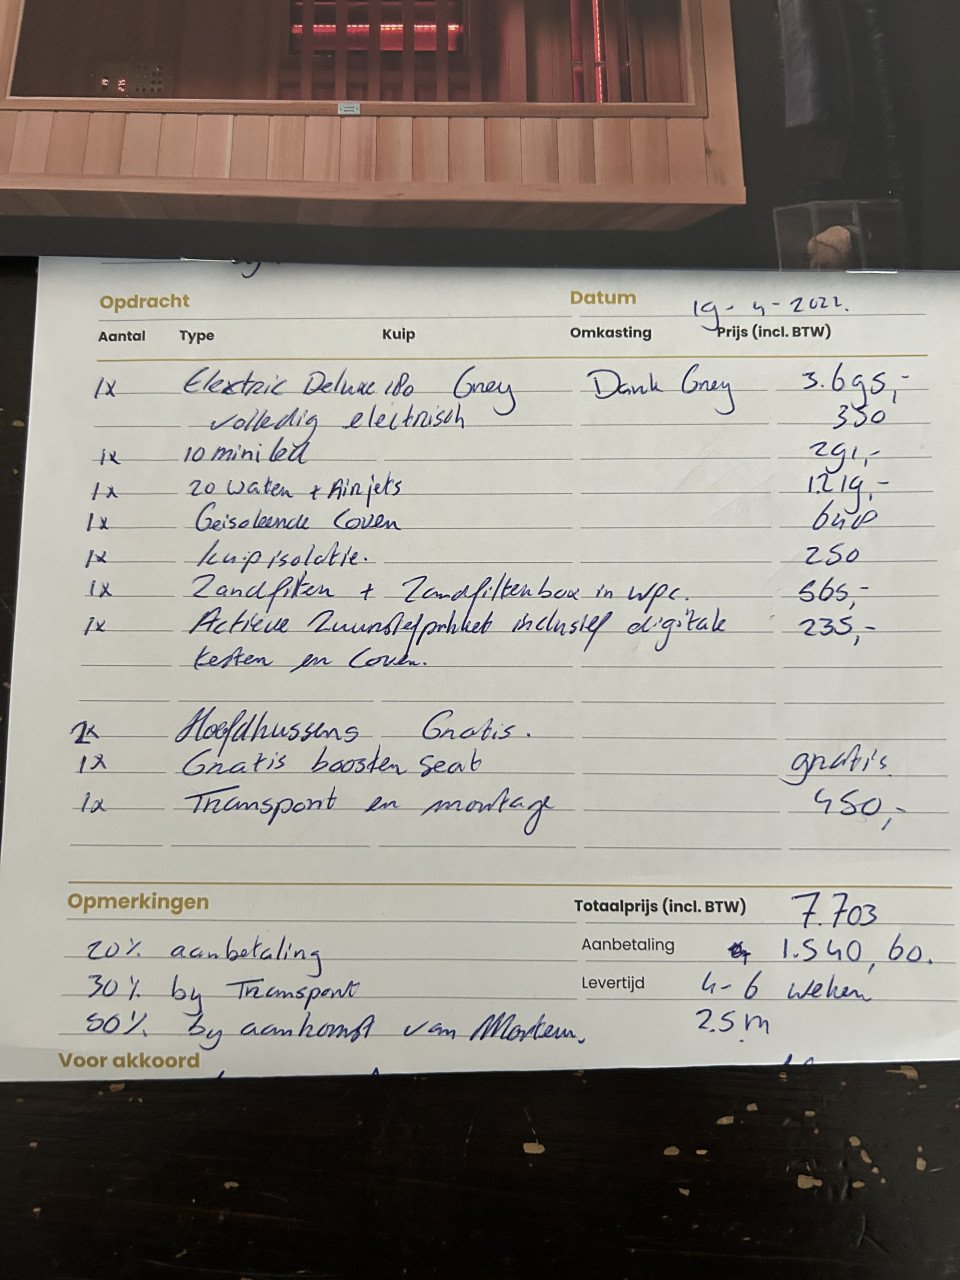 Opdracht Datum 19-4-2022.
Aantal Type Kuip Omkasting Prijs (incl. BTW)
1x Electric Deluxe 180 Grey Dark Grey 3.695,-
volledig electrisch 350
1x 10 mini led 291,-
1x 20 Water + Airjets 1.219,-
1x Geisoleerde Cover 648
1x kuipisolatie. 250
1x Zandfilter + Zandfilterbox in wpc. 565,-
1x Actieve Zuurstofpakket inclusief digitale 235,-
tester en Cover.
2x Hoofdkussens Gratis.
1x Gratis booster seat gratis
1x Transport en montage 450,-
Opmerkingen Totaalprijs (incl. BTW) 7.703
20% aanbetaling Aanbetaling 1.540,60.
30% by Transport Levertijd 4-6 weken
50% by aankomst van Monteur. 2.5m
Voor akkoord